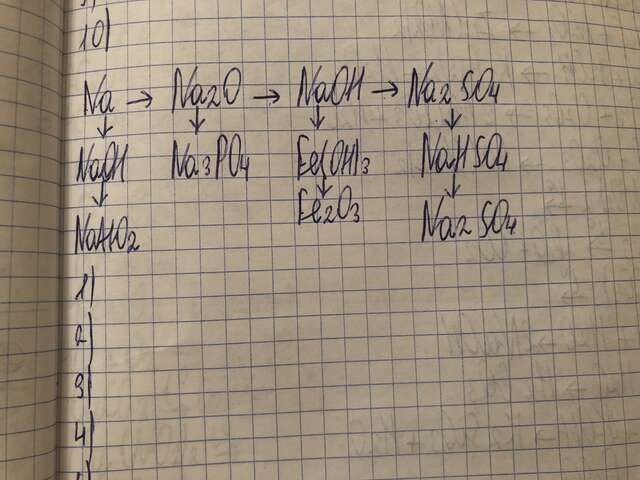 10)
Na → Na2O → NaOH → Na2SO4
↓ ↓ ↓ ↓
NaOH Na3PO4 Fe(OH)3 NaHSO4
↓ ↓ ↓
NaNO2 Fe2O3 Na2SO4
1)
2)
3)
4)